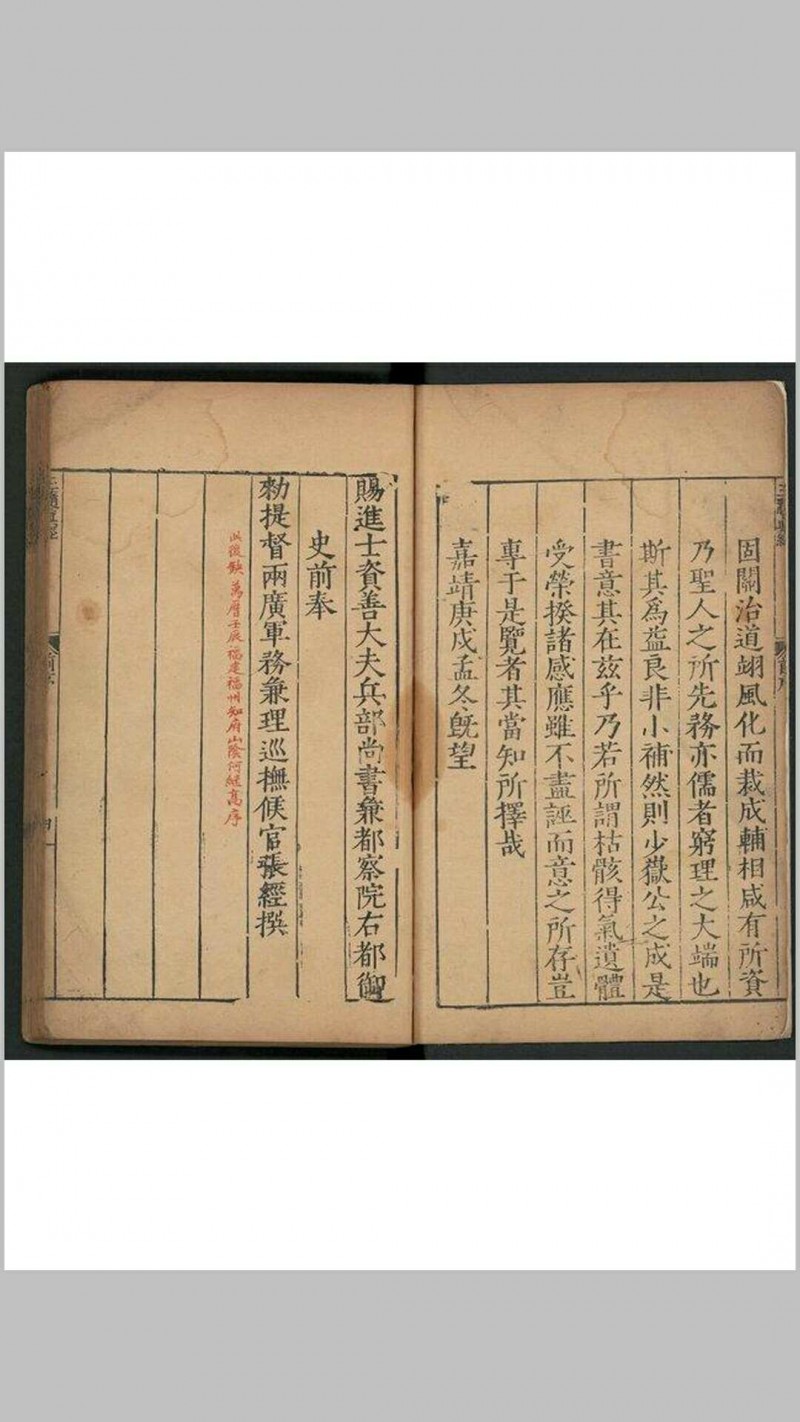 固關治道翊風化而裁成輔相咸有所資
乃聖人之所先務亦儒者窮理之大端也
斯其為益良非小補然則少嶽公之成是
書意其在兹乎乃若所謂枯骸得氣遺體
受榮揆諸感應雖不盡誣而意之所存豈
專于是覽者其當知所擇哉
嘉靖庚戌孟冬旣望
賜進士資善大夫兵部尚書兼都察院右都御
史前奉
勑提督兩廣軍務兼理巡撫候官張經撰
以後缺萬曆壬辰福建福州知府山陰何繼高序